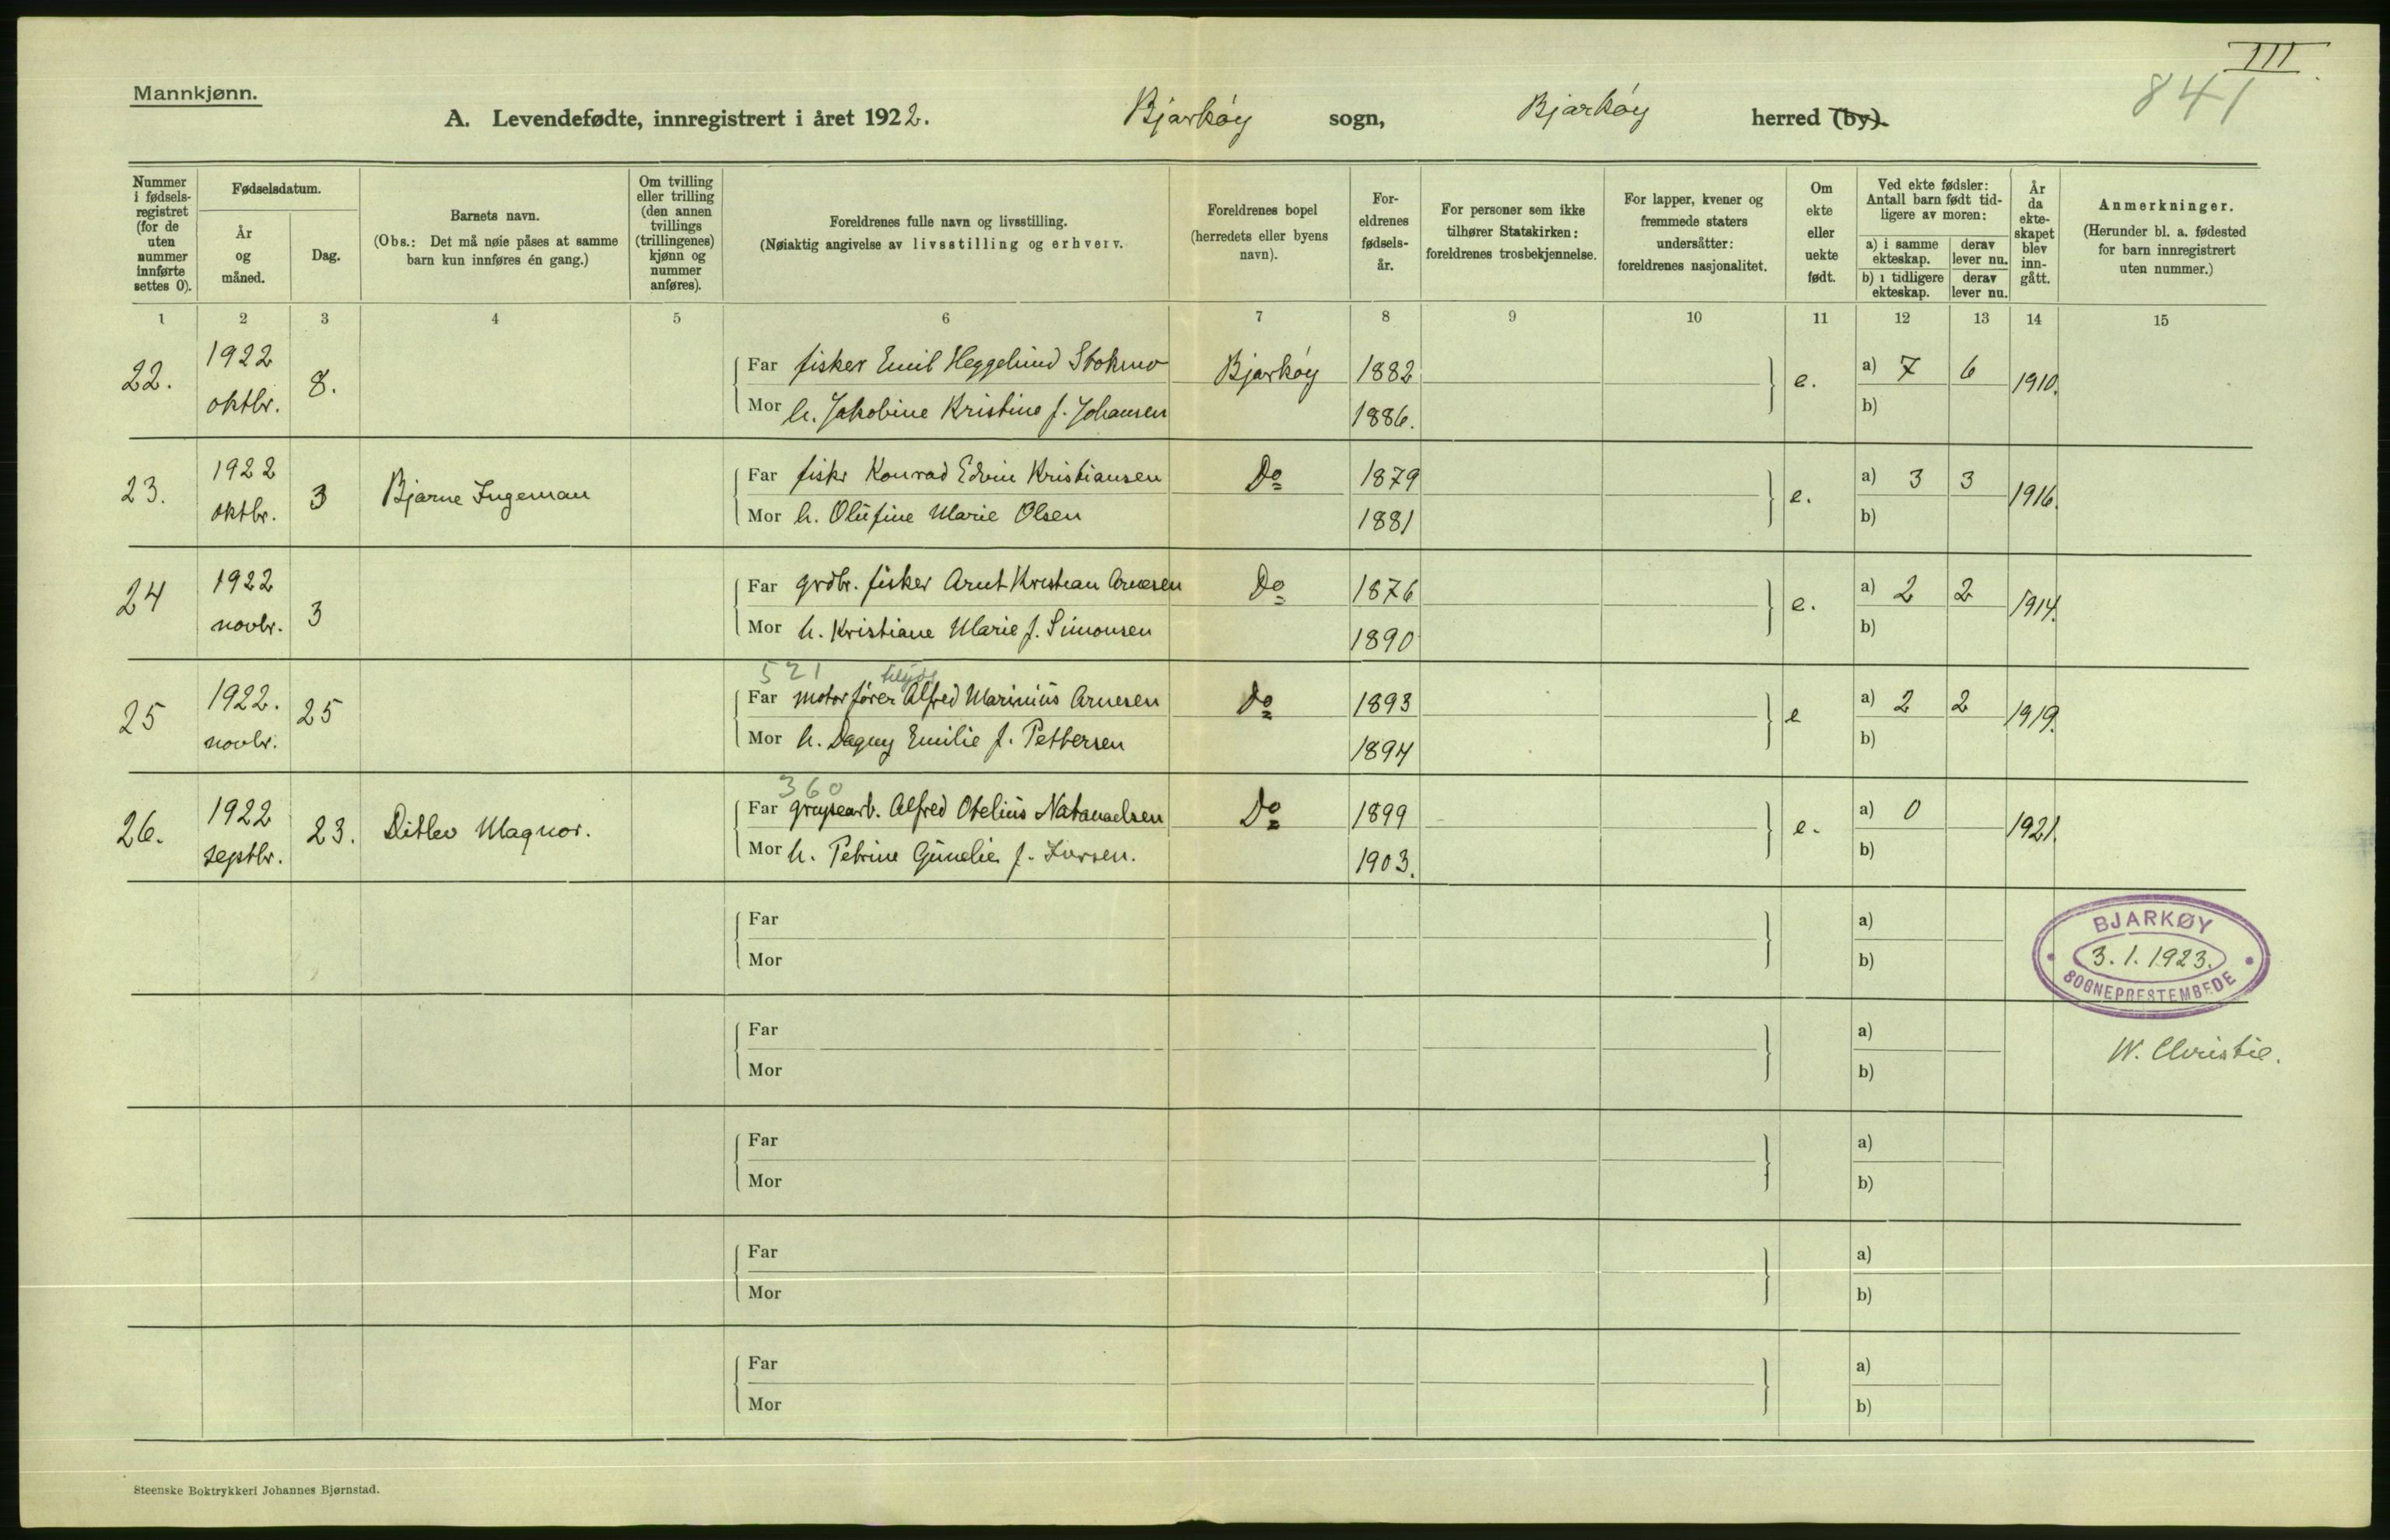 III
841
Mannkjønn.
A. Levendefødte, innregistrert i året 1922. Bjarkøy sogn, Bjarkøy herred (by).
Nummer i fødsels-registret (for de uten nummer innførte settes 0).
Fødselsdatum.
År og måned.
Dag.
Barnets navn.
(Obs.: Det må nøie påses at samme barn kun innføres én gang.)
Om tvilling eller trilling (den annen tvillings (trillingenes) kjønn og nummer anføres).
Foreldrenes fulle navn og livsstilling.
(Nøiaktig angivelse av livsstilling og erhverv.
Foreldrenes bopel (herredets eller byens navn).
For-eldrenes fødsels-år.
For personer som ikke tilhører Statskirken: foreldrenes trosbekjennelse.
For lapper, kvener og fremmede staters undersåtter: foreldrenes nasjonalitet.
Om ekte eller uekte født.
Ved ekte fødsler: Antall barn født tid-ligere av moren:
a) i samme ekteskap.
derav lever nu.
b) i tidligere ekteskap.
derav lever nu.
År da ekte-skapet blev inn-gått.
Anmerkninger.
(Herunder bl. a. fødested for barn innregistrert uten nummer.)
1 2 3 4 5 6 7 8 9 10 11 12 13 14 15
22. 1922 oktbr. 8. Far fisker Emil Heggelund Stokmo Bjarkøy 1882 e. a) 7 6 1910.
Mor h. Jakobine Kristine f. Johansen 1886. b)
23. 1922 oktbr. 3 Bjarne Ingeman Far fisker Konrad Edvin Kristiansen Do 1879 e. a) 3 3 1916.
Mor h. Olufine Marie Olsen 1881 b)
24 1922 novbr. 3 Far grdbr. fisker Arnt Kristian Arnesen Do 1876 e. a) 2 2 1914.
Mor h. Kristiane Marie f. Simonsen 1890 b)
521
25 1922. novbr. 25 Far motorfører Alfred Marinius Arnesen Do 1893 e a) 2 2 1919.
Mor h. Dagny Emilie f. Pettersen 1894 b)
360
26. 1922 septbr. 23. Ditlev Magnor. Far Alfred Otelius Natanaelsen Do 1899 e. a) 0 1921.
Mor h. Petrine f. Iversen. 1903. b)
Far a)
Mor b)
BJARKØY
3.1.1923.
SOGNEPRESTEMBEDE
Far a)
W. Christie.
Mor b)
Far a)
Mor b)
Far a)
Mor b)
Far a)
Mor b)
Steenske Boktrykkeri Johannes Bjørnstad.